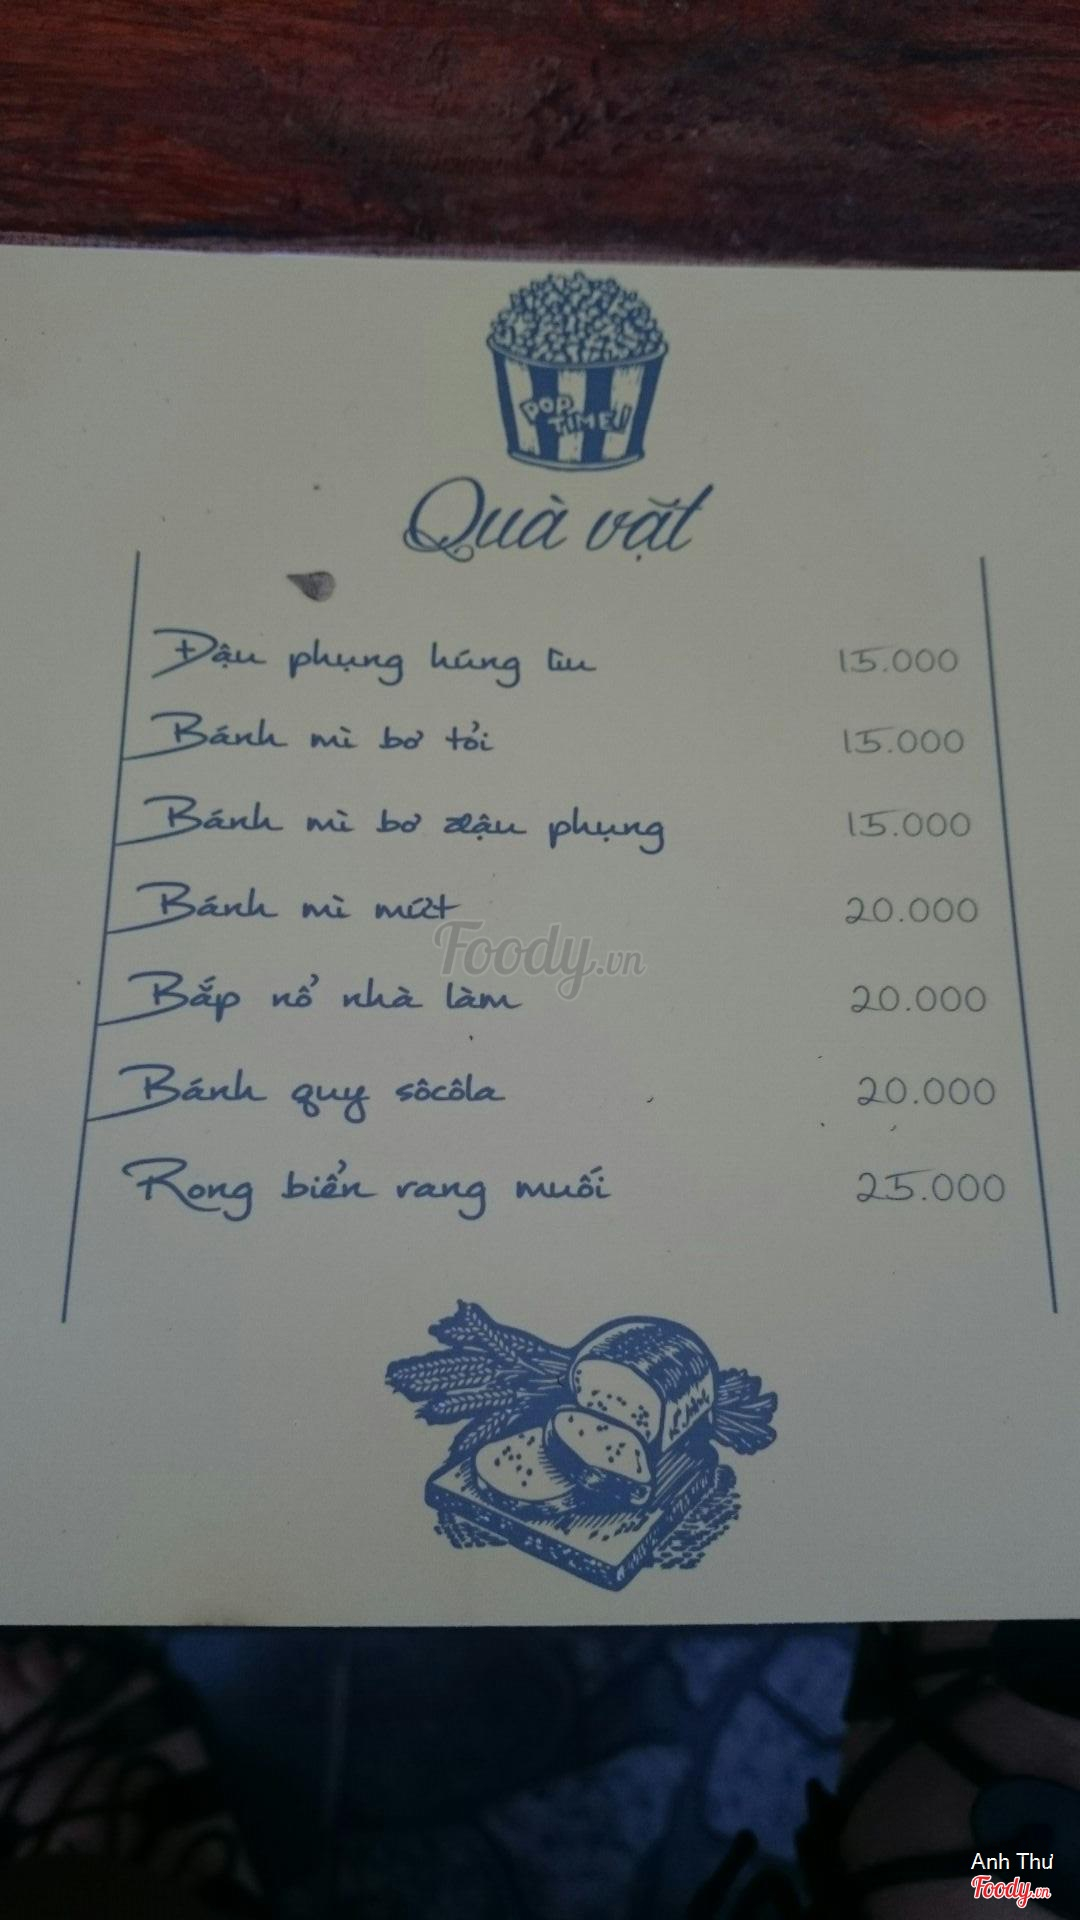 POP
TIME!!
Quà vặt
Đậu phụng húng lìu 15.000
Bánh mì bơ tỏi 15.000
Bánh mì bơ đậu phụng 15.000
Bánh mì mứt 20.000
Foody.vn
Bắp nổ nhà làm 20.000
Bánh quy sôcôla 20.000
Rong biển rang muối 25.000
Anh Thư
Foody.vn